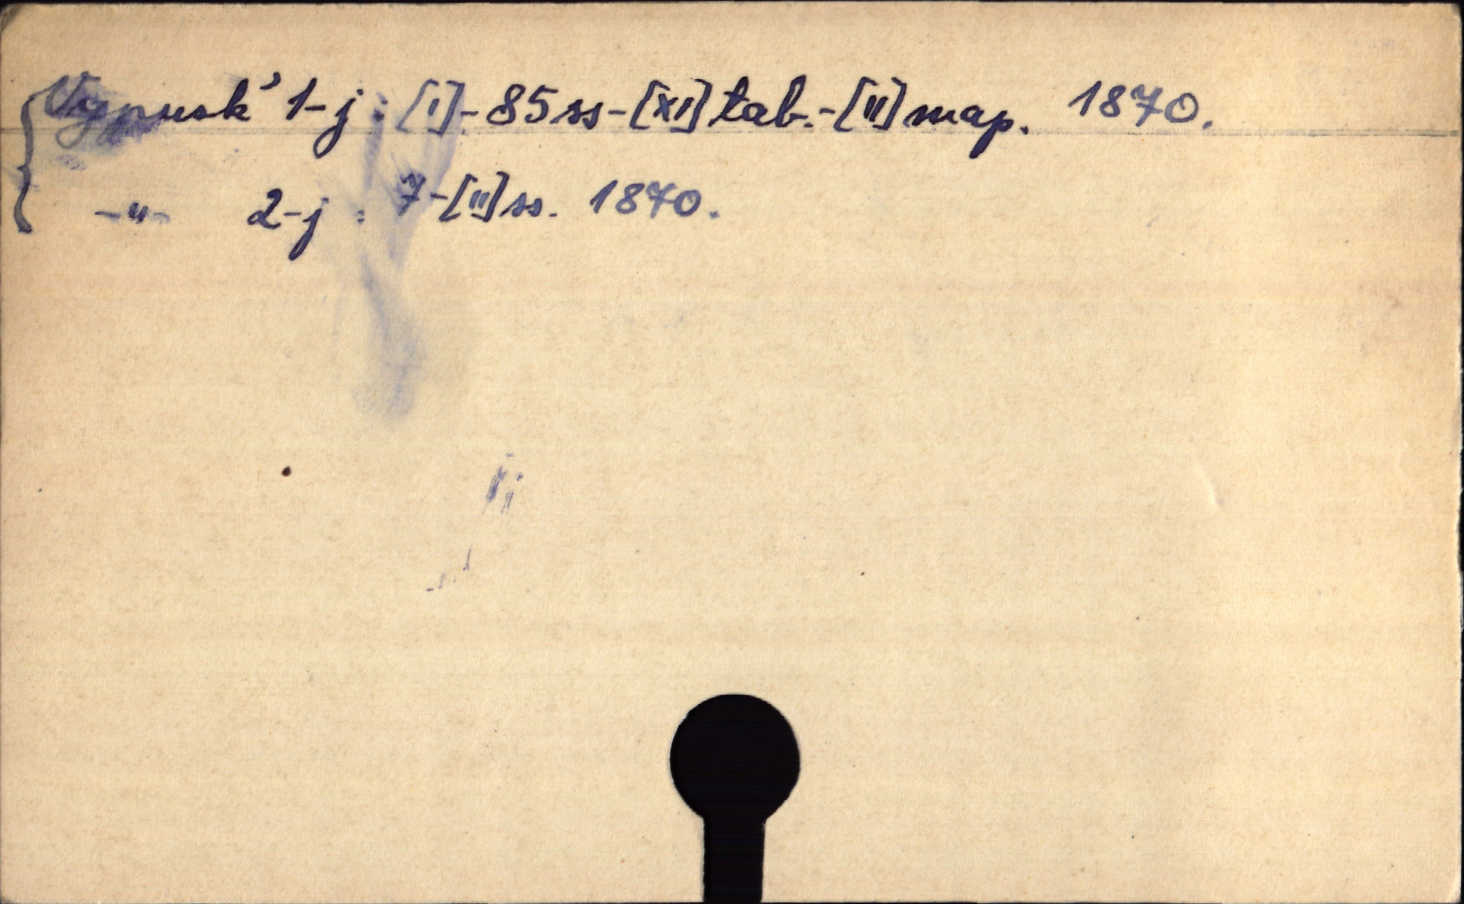 Vypusk' 1-j : [I]-85 ss-[XI] tab.-[II] map. 1870.
-"- 2-j : 7-[II] ss. 1870.